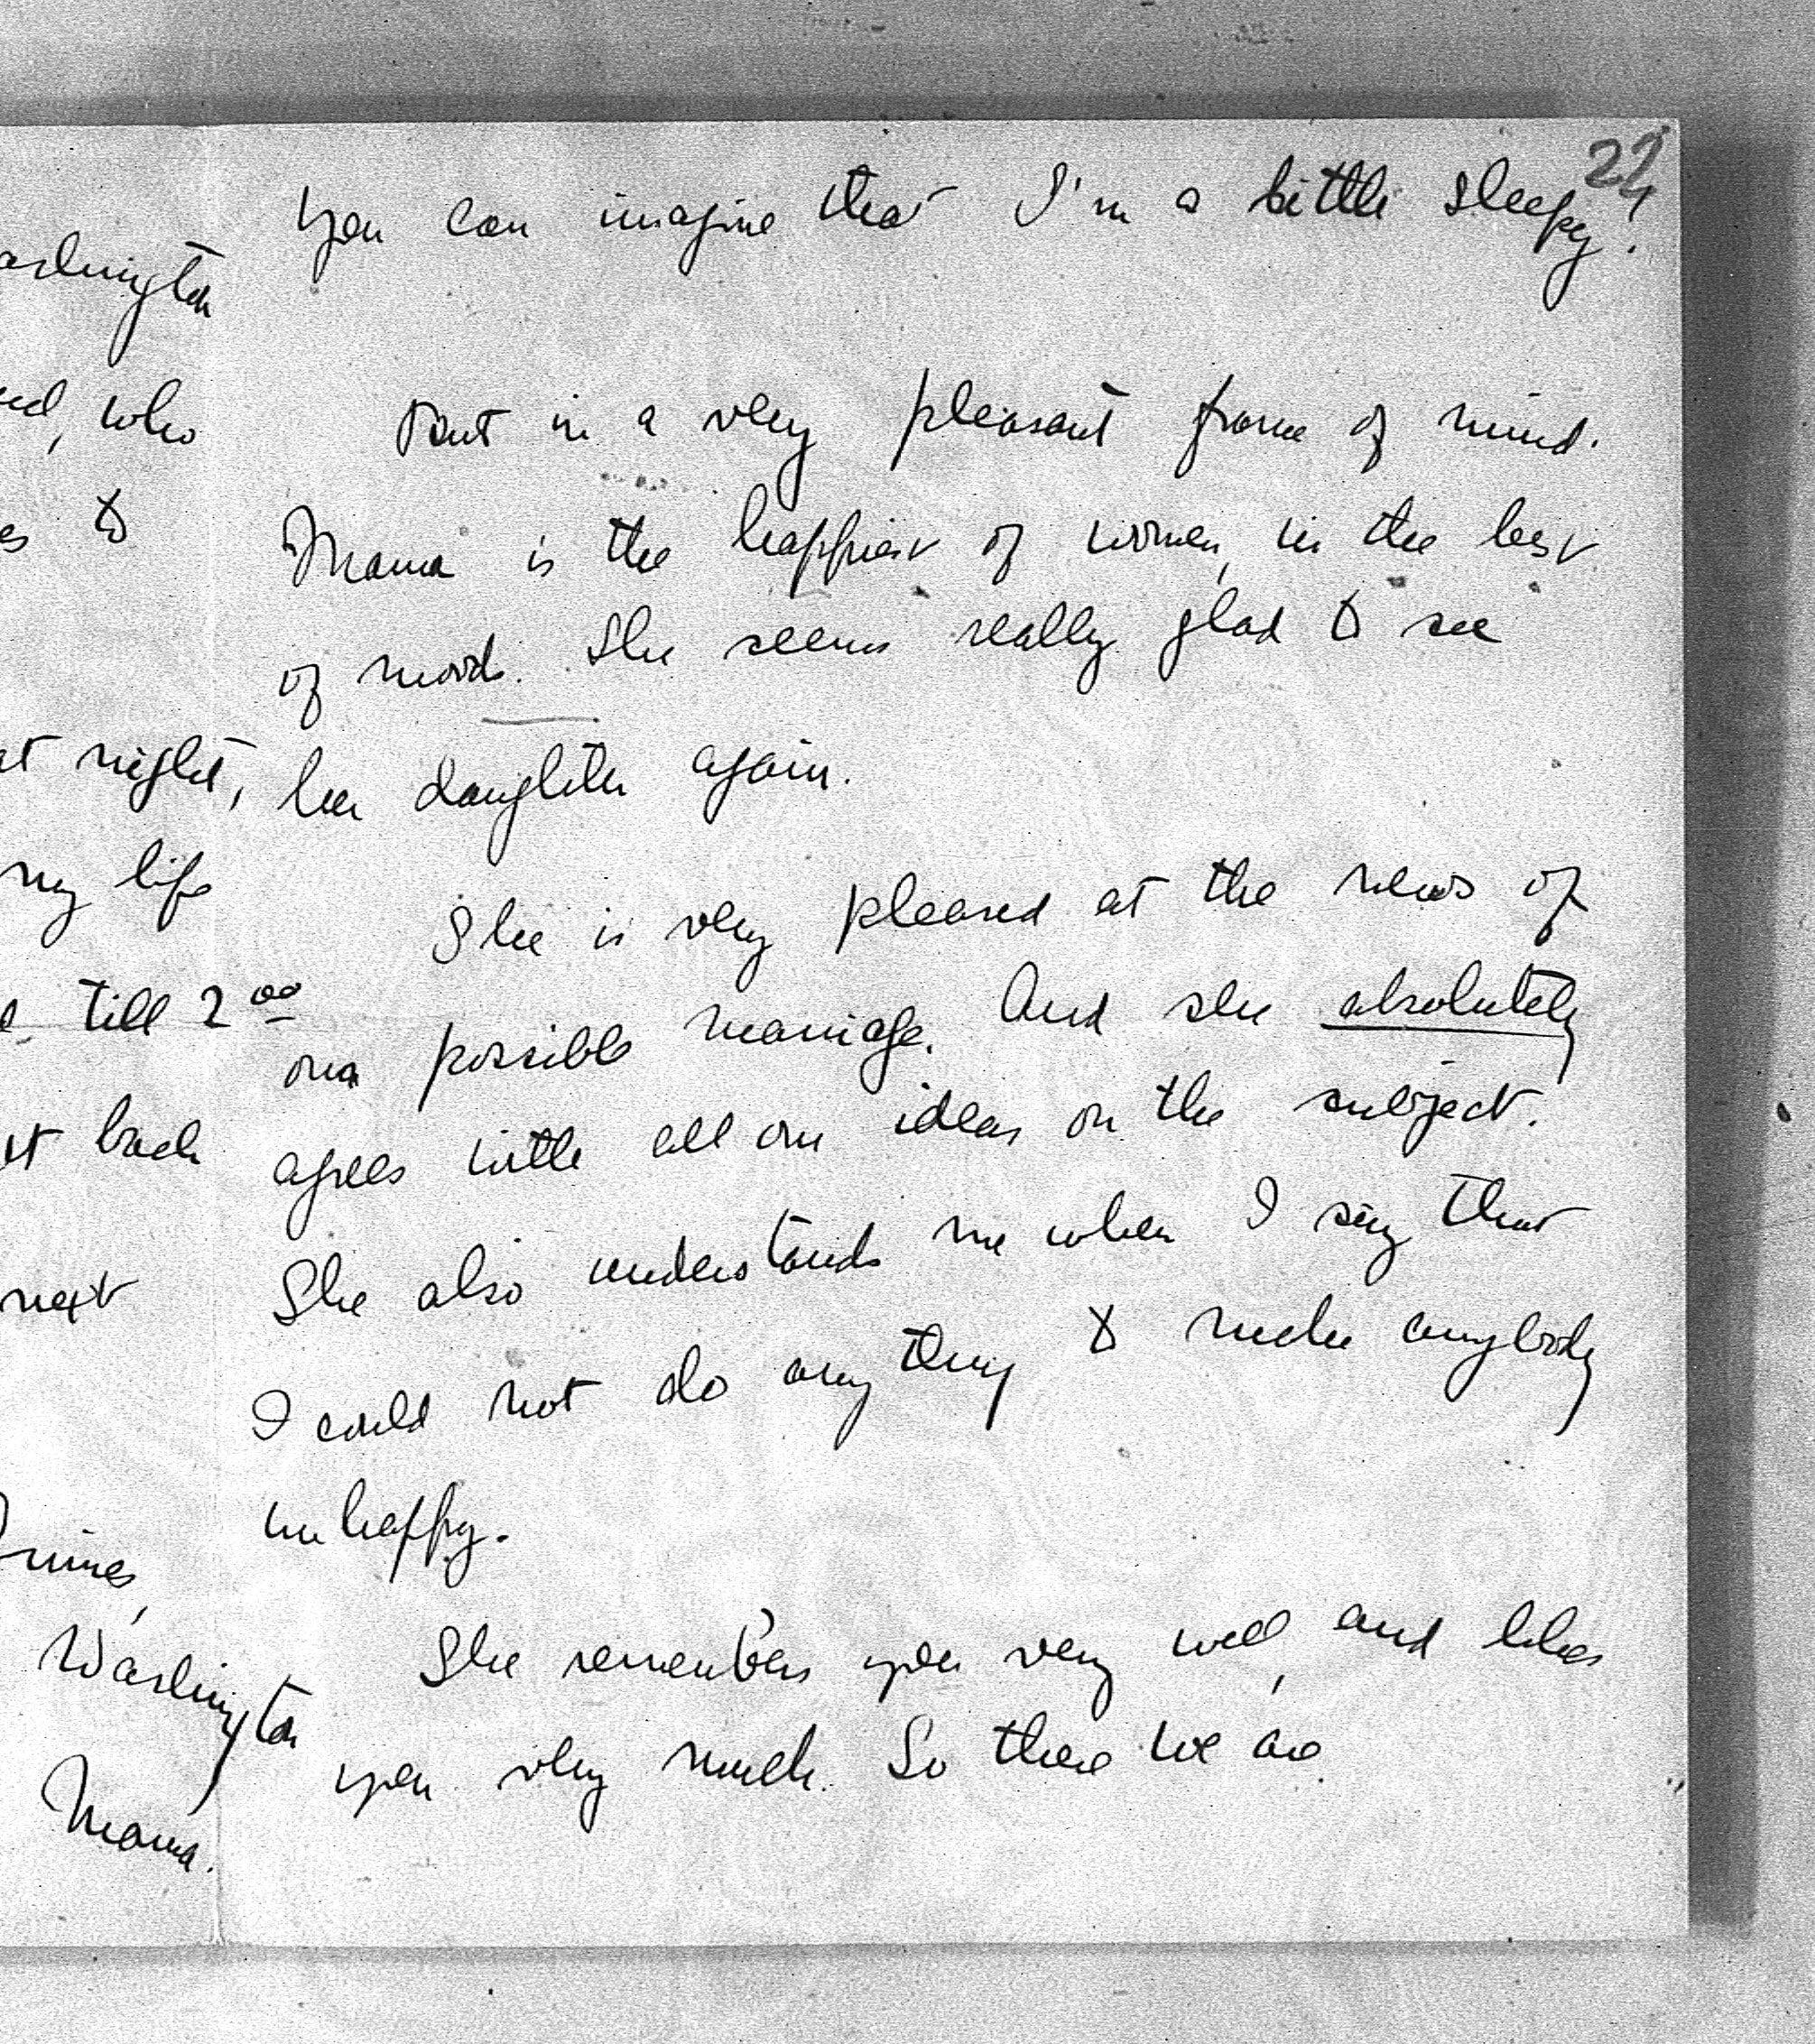 22
ashington
, who
es to
at night,
my life
till 2 00
back
next
Washington
Mama.
you can imagine that I'm a little sleepy!
But in a very pleasant frame of mind.
Mama is the happiest of women, in the best
of moods. She seems really glad to see
her daughter again.
She is very pleased at the news of
our possible marriage. And she absolutely
agrees with all our ideas on the subject.
She also understands me when I say that
I could not do any thing to make anybody
unhappy.
She remembers you very well, and likes
you very much. So there we are.